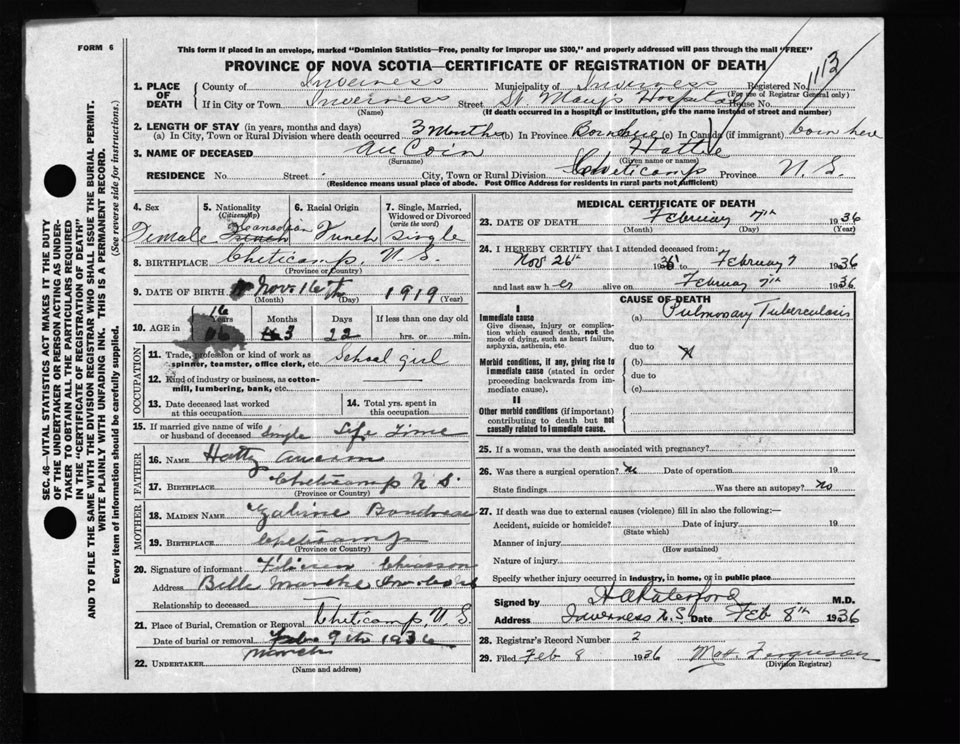 FORM 6
This form if placed in an envelope, marked "Dominion Statistics—Free, penalty for improper use $300," and properly addressed will pass through the mail "FREE"
PROVINCE OF NOVA SCOTIA—CERTIFICATE OF REGISTRATION OF DEATH
1. PLACE OF DEATH
County of Inverness Municipality of Inverness Registered No. 1113
(For use of Registrar General only)
If in City or Town Inverness Street St. Mary's Hospital House No.
(Name) (If death occurred in a hospital or institution, give the name instead of street and number)
2. LENGTH OF STAY (in years, months and days)
(a) In City, Town or Rural Division where death occurred 3 Months (b) In Province Born here (c) In Canada (if immigrant) born here
3. NAME OF DECEASED Au Coin Hattie
(Surname) (Given name or names)
RESIDENCE No. Street City, Town or Rural Division Cheticamp Province N.S.
(Residence means usual place of abode. Post Office Address for residents in rural parts not sufficient)
SEC. 46—VITAL STATISTICS ACT MAKES IT THE DUTY
OF THE UNDERTAKER OR PERSON ACTING AS UNDER-
TAKER TO OBTAIN ALL THE PARTICULARS REQUIRED
IN THE "CERTIFICATE OF REGISTRATION OF DEATH"
AND TO FILE THE SAME WITH THE DIVISION REGISTRAR WHO SHALL ISSUE THE BURIAL PERMIT.
WRITE PLAINLY WITH UNFADING INK. THIS IS A PERMANENT RECORD.
Every item of information should be carefully supplied. (See reverse side for instructions.)
4. Sex 5. Nationality (Citizenship) 6. Racial Origin 7. Single, Married, Widowed or Divorced (write the word)
Canadian
Female French French Single
8. BIRTHPLACE Cheticamp, N.S.
(Province or Country)
9. DATE OF BIRTH Nov 16th 1919
(Month) (Day) (Year)
16
10. AGE in Years Months Days If less than one day old
16 3 22 hrs. or min.
OCCUPATION
11. Trade, profession or kind of work as spinner, teamster, office clerk, etc. School girl
12. Kind of industry or business, as cotton-mill, lumbering, bank, etc.
13. Date deceased last worked at this occupation 14. Total yrs. spent in this occupation
15. If married give name of wife or husband of deceased Single Life Time
FATHER
16. NAME Hatty Aucoin
17. BIRTHPLACE Cheticamp N S.
(Province or Country)
MOTHER
18. MAIDEN NAME
19. BIRTHPLACE Cheticamp
(Province or Country)
20. Signature of informant Chiasson
Address Belle Marche
Relationship to deceased
21. Place of Burial, Cremation or Removal Cheticamp, N.S.
Date of burial or removal Feb 9th 1936
22. UNDERTAKER
(Name and Address)
MEDICAL CERTIFICATE OF DEATH
23. DATE OF DEATH February 7th 1936
(Month) (Day) (Year)
24. I HEREBY CERTIFY that I attended deceased from:
Nov 26th 1935 to February 7 1936
and last saw her alive on February 7th 1936
CAUSE OF DEATH
I
Immediate cause
Give disease, injury or complication which caused death, not the mode of dying, such as heart failure, asphyxia, asthenia, etc.
(a) Pulmonary Tuberculosis
due to
Morbid conditions, if any, giving rise to immediate cause (stated in order proceeding backwards from immediate cause).
(b)
due to
(c)
II
Other morbid conditions (if important) contributing to death but not causally related to immediate cause.
25. If a woman, was the death associated with pregnancy?
26. Was there a surgical operation? no Date of operation 19
State findings Was there an autopsy? no
27. If death was due to external causes (violence) fill in also the following:—
Accident, suicide or homicide? Date of injury 19
(State which)
Manner of injury
(How sustained)
Nature of injury
Specify whether injury occurred in industry, in home, or in public place
Signed by M.D.
Address Inverness N.S. Date Feb 8th 1936
28. Registrar's Record Number 2
29. Filed Feb 8 1936 Ferguson
(Division Registrar)